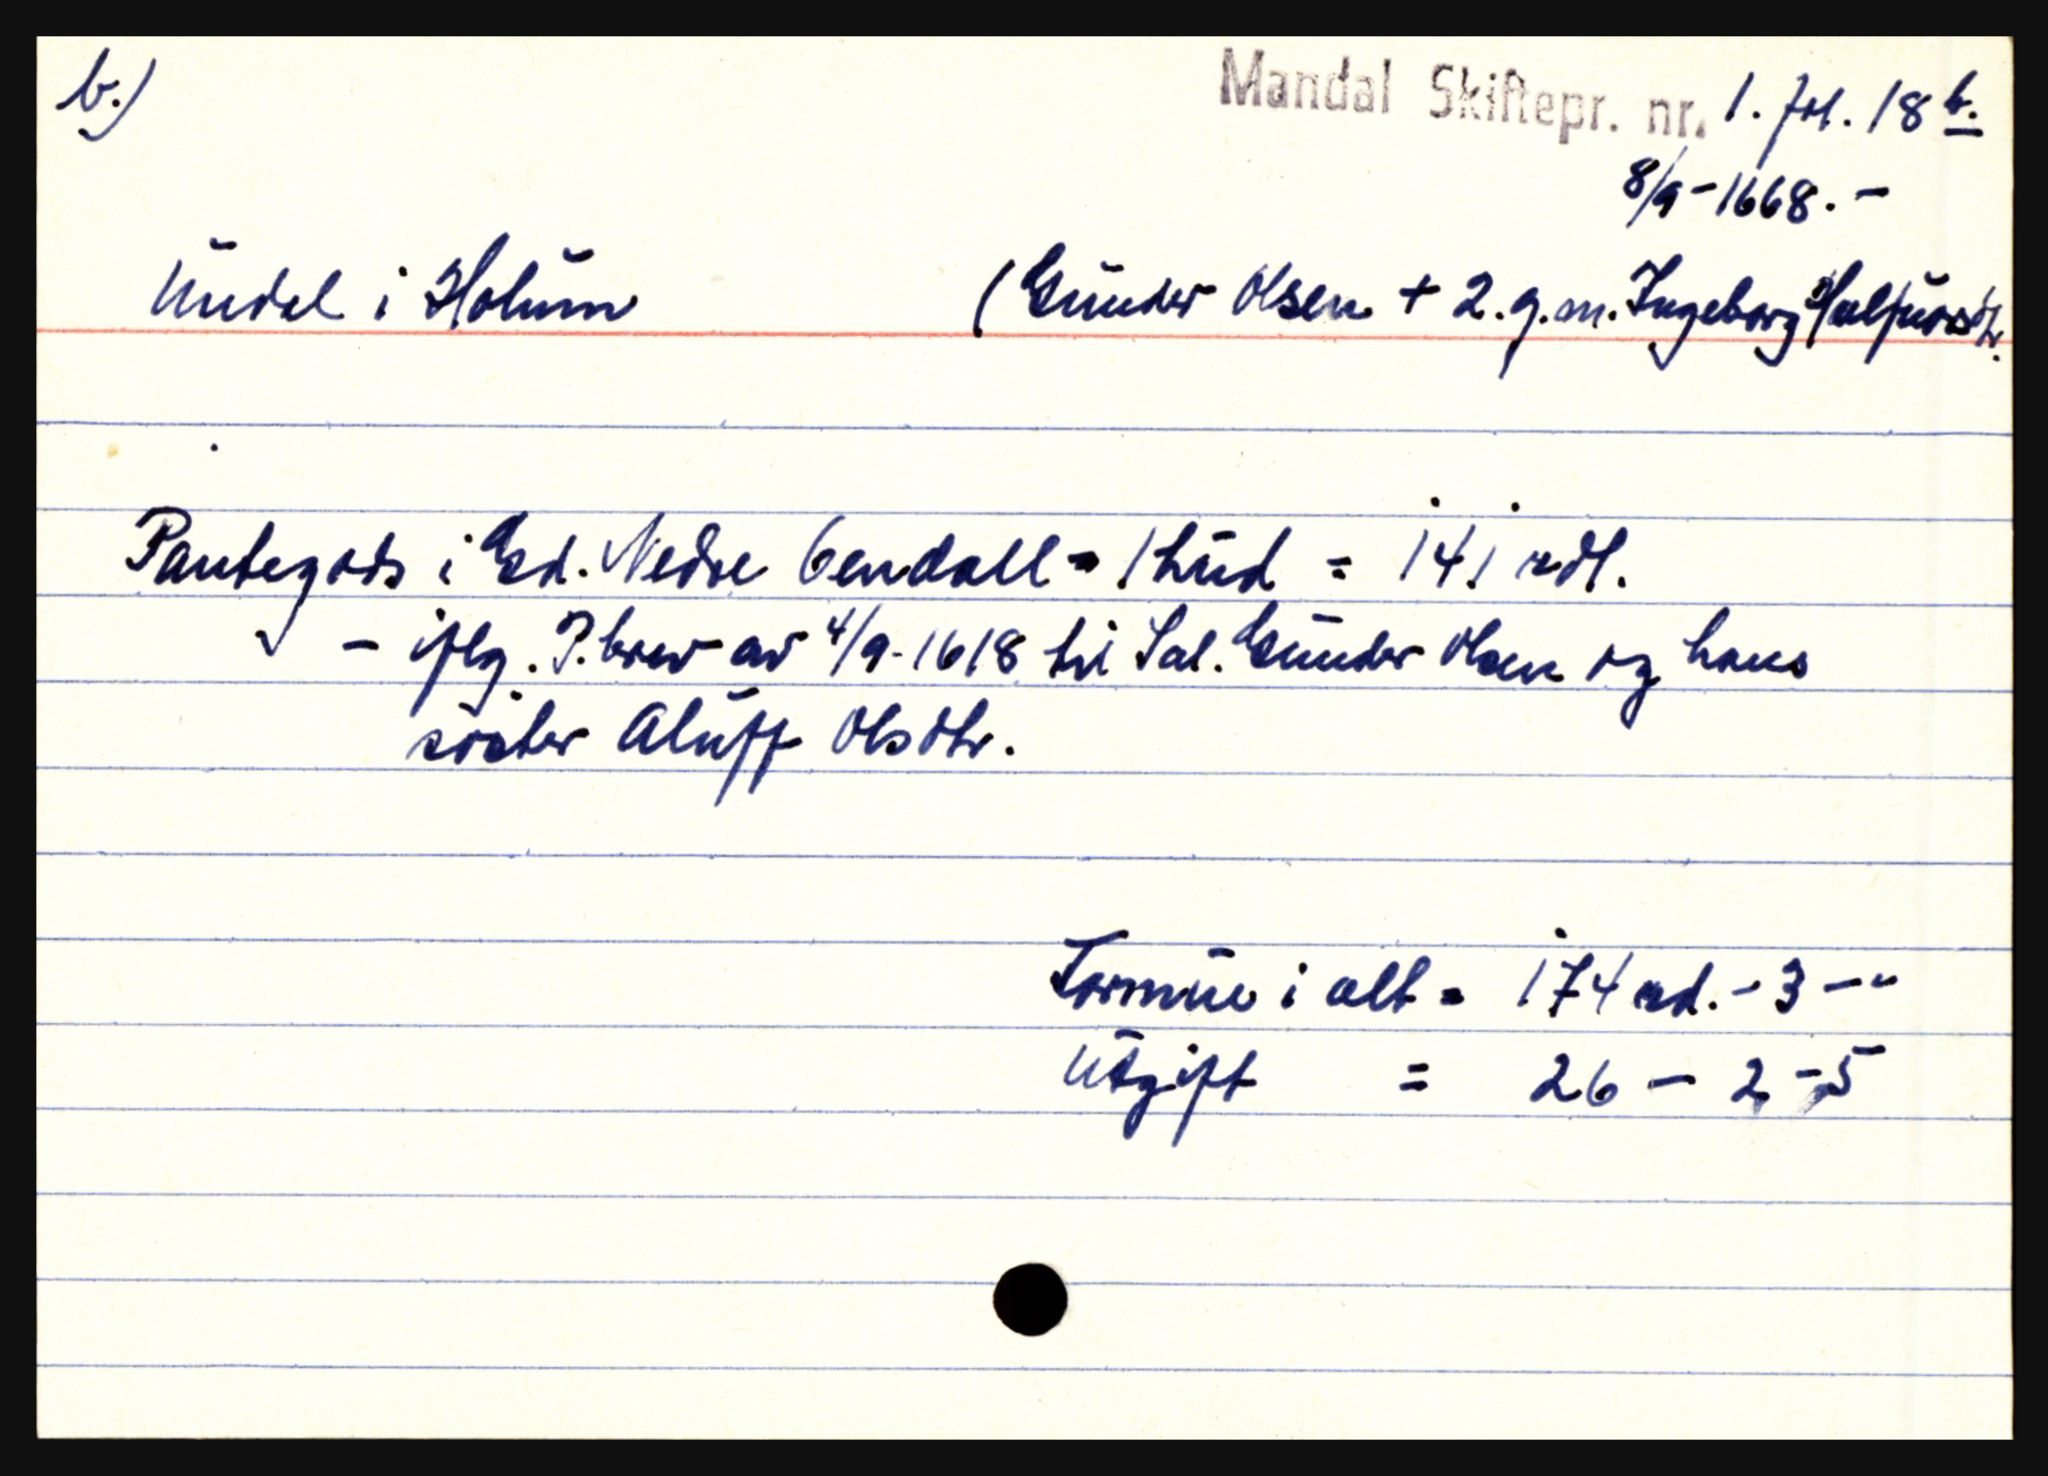 b.)
Mandal Skiftepr. nr. 1. fol. 18 b.
8/9-1668.-
Undal i Holum (Gunder Olsen + 2.g.m. Ingeborg Halfuorsdtr.
Pantegods i Gd. Nedre Gendall = 1 hud = 141 rdl.
- iflg. P.brev av 4/9-1618 til Sal. Gunder Olsen og hans
söster Aluff Olsdtr.
Formue i alt = 174 rd. - 3 - "
Utgift = 26 - 2 - 5